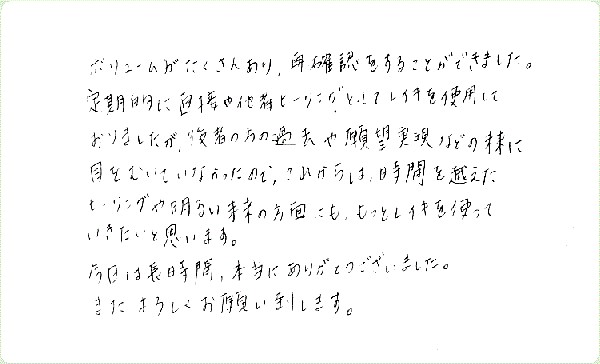 ボリュームがたくさんあり、再確認をすることができました。
定期的に直接や他者ヒーリングとしてレイキを使用して
おりましたが、後者の方の過去や願望実現などの未来に
目をむいていなかったので、これからは、時間を越えた
ヒーリングや明るい未来の方面にも、もっとレイキを使って
いきたいと思います。
今日は長時間、本当にありがとうございました。
またよろしくお願い致します。